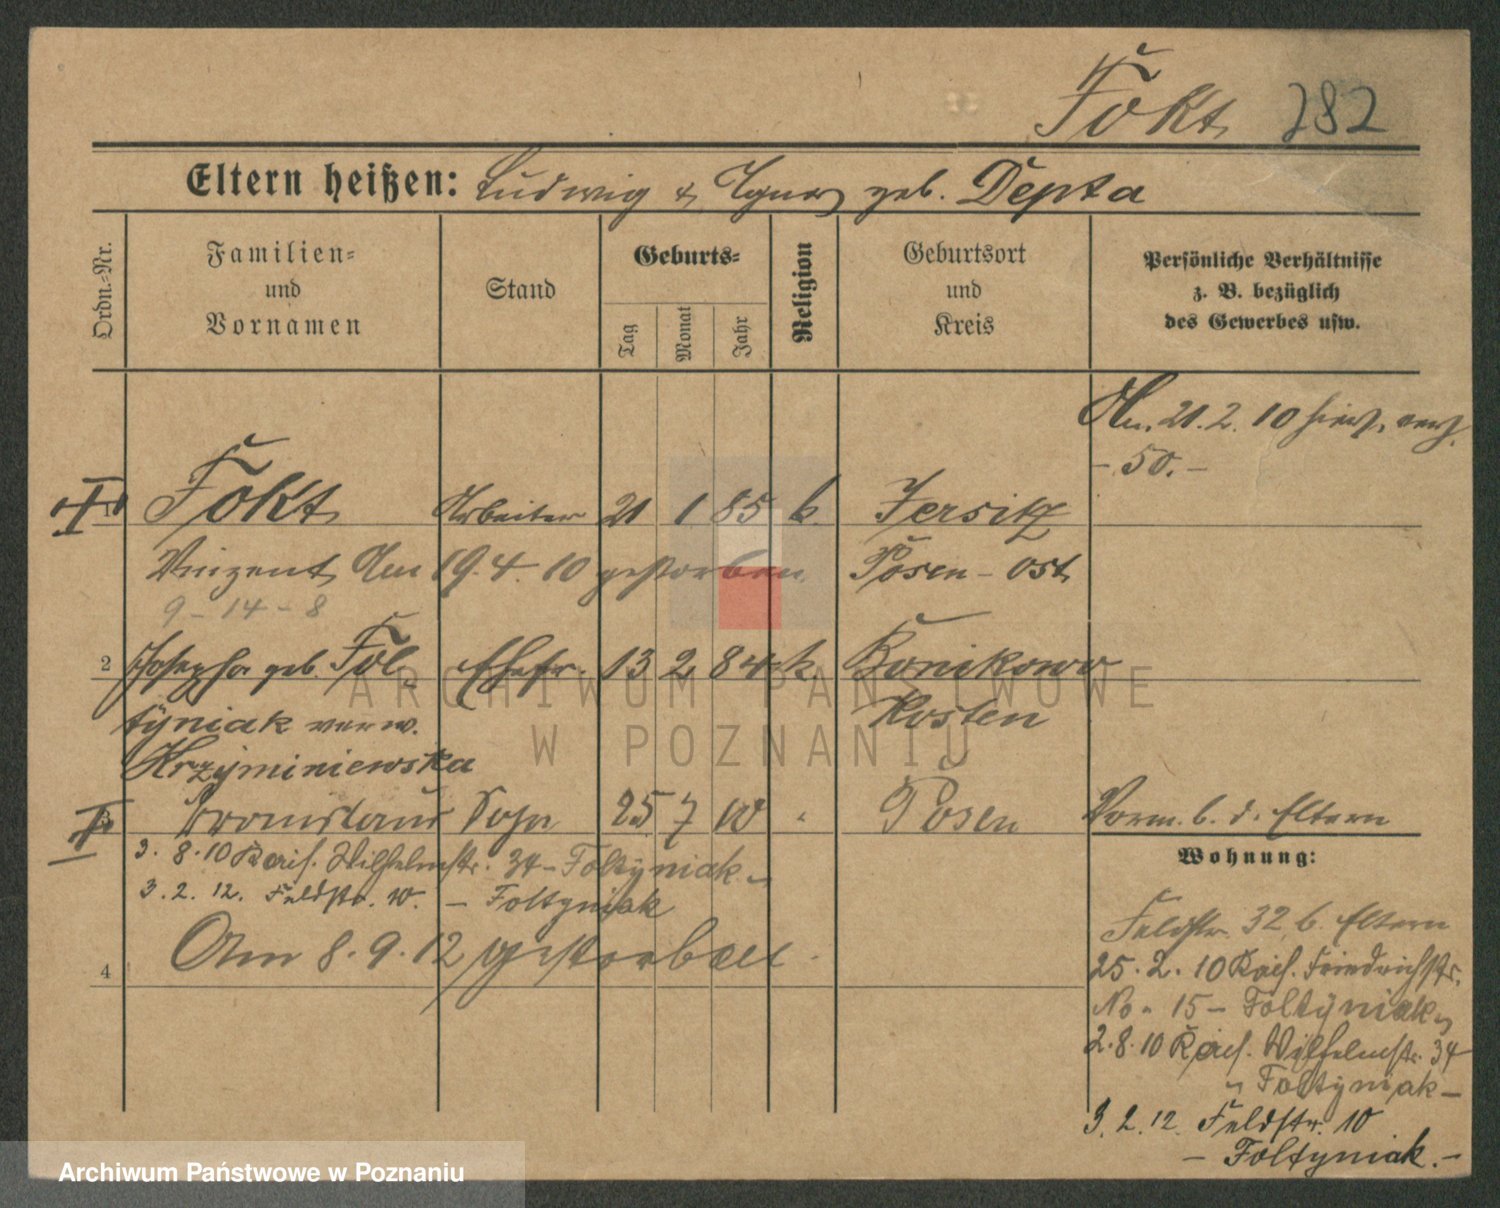 Fokt 282
Eltern heißen: Ludwig & Ignaz geb. Depta
Ordn.-Nr.
Familien- und Vornamen
Stand
Geburts-
Tag
Monat
Jahr
Religion
Geburtsort und Kreis
Persönliche Verhältnisse z. B. bezüglich des Gewerbes usw.
21. 2. 10
- 50. -
1 Fokt Arbeiter 21 1 85 k. Jersitz
Vinzent Am 19. 4. 10 gestorben Posen - Ost
9 - 14 - 8
2 Josepha geb. Fol- Ehefr. 13 2 84 k. Konikowo
tyniak verw. Kosten
Krzyminiewska
3 Bronislaus 25 7 10 " Posen Vorm. b. d. Eltern
3. 8. 10 Kais. Wilhelmstr. 34 - Foltyniak -
3. 2. 12. Feldstr. 10. - Foltyniak
4 Am 8. 9. 12 gestorben.
Wohnung:
Feldstr. 32 b. Eltern
25. 2. 10 Kais. Friedrichstr.
No. 15 - Foltyniak
2. 8. 10 Kais. Wilhelmstr. 34
Foltyniak -
3. 2. 12. Feldstr. 10
- Foltyniak. -
ARCHIWUM PAŃSTWOWE
W POZNANIU
Archiwum Państwowe w Poznaniu